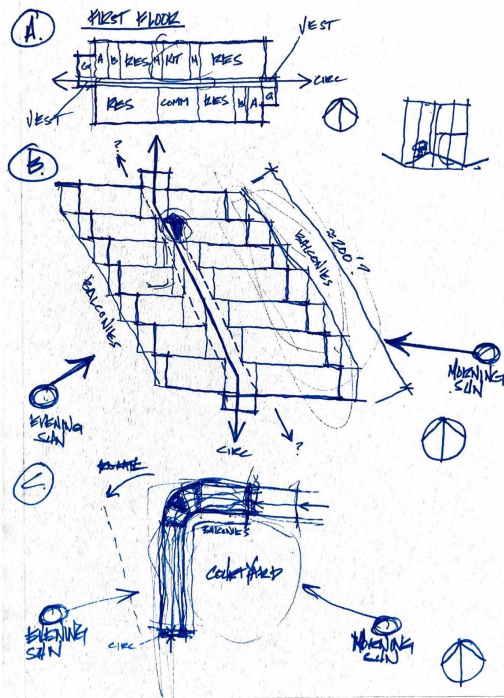 A.
FIRST FLOOR
VEST
G A B RES M KIT M RES
CIRC
RES COMM RES B A G
VEST
B.
?
BALCONIES
≈200'?
BALCONIES
MORNING
SUN
EVENING
SUN
CIRC
?
C
ROTATE
BALCONIES
COURTYARD
EVENING
SUN
CIRC
MORNING
SUN